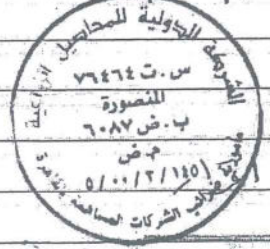 الشركة الدولية للمحاصيل الزراعية
س.ت ٧٦٤٦٤
المنصورة
ب.ض ٦٠٨٧
م ض
٥/٠٠/٢/١٤٥١
ضرائب الشركات المساهمة بالقاهرة